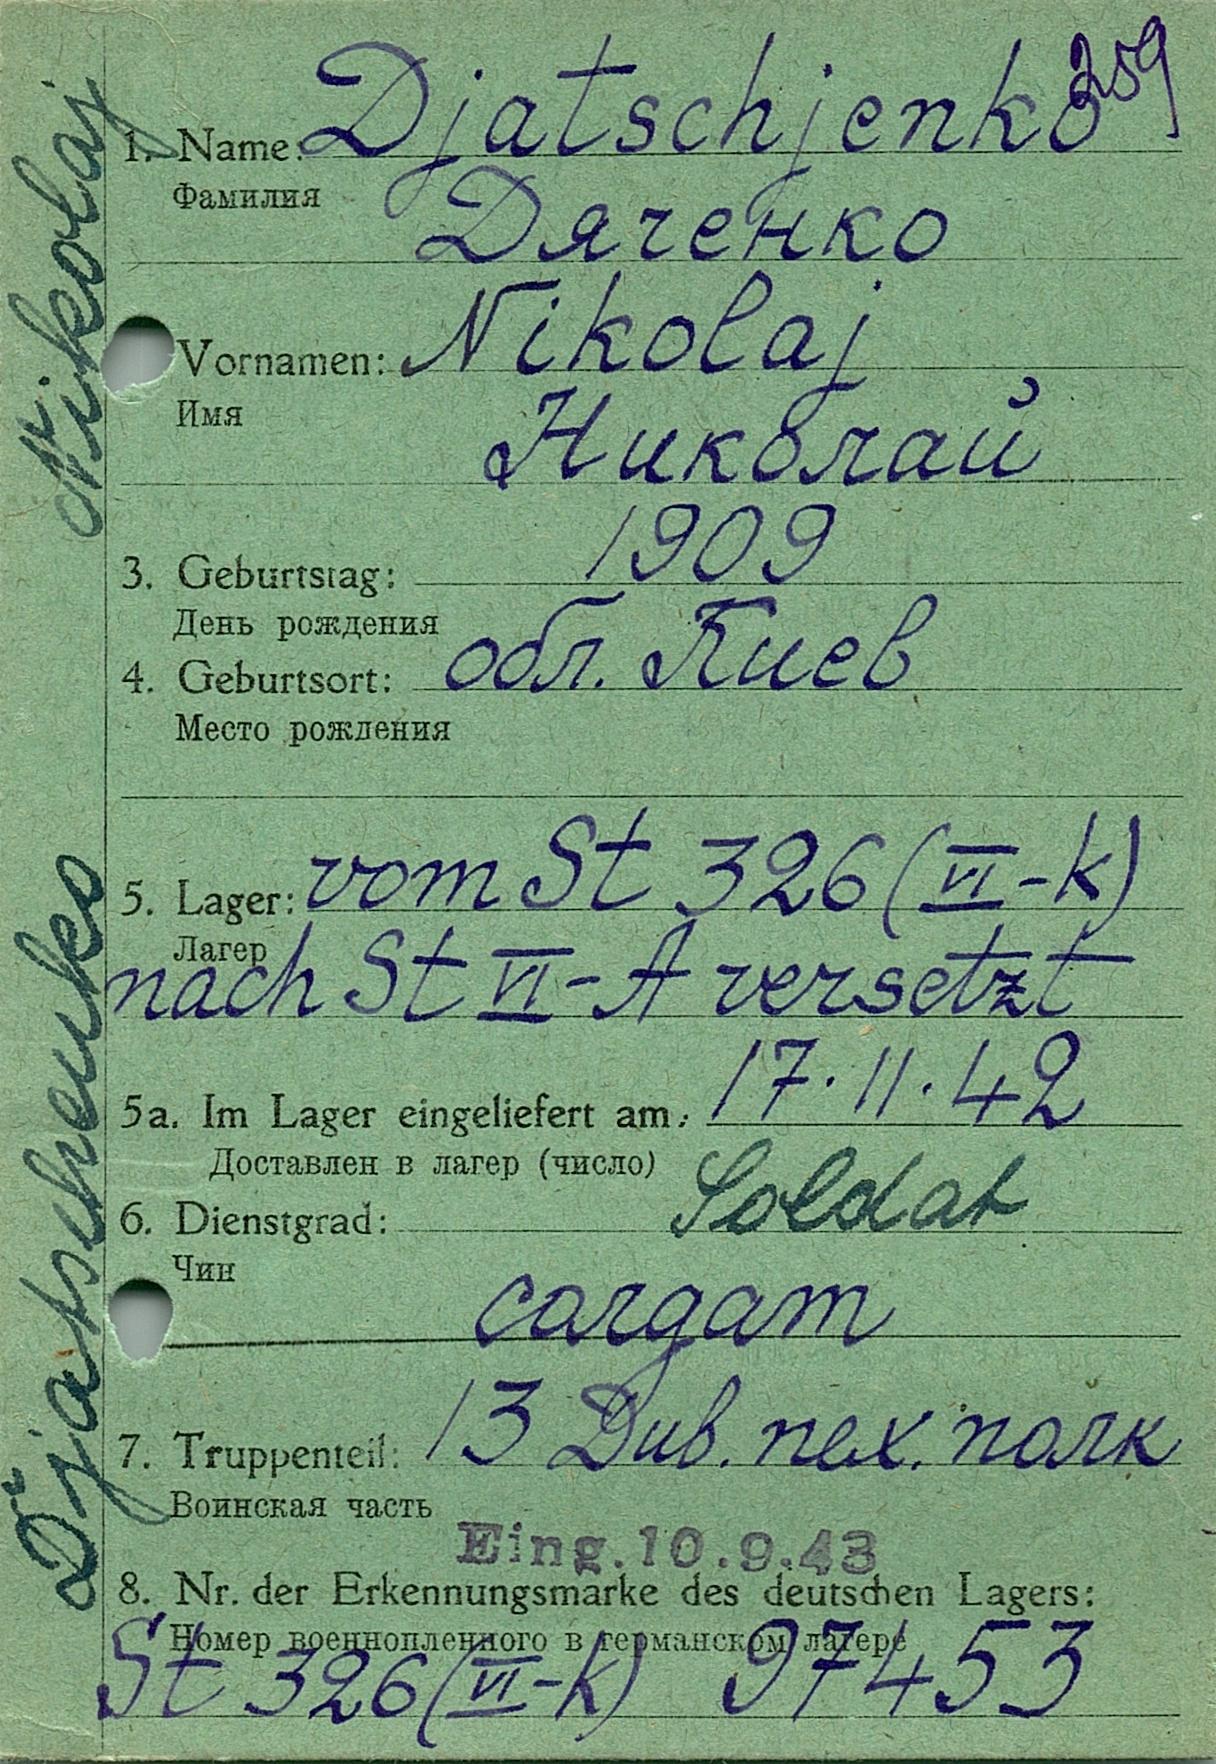 359
1. Name: Djatschjenko
Фамилия
Дяченко
Vornamen: Nikolaj
Имя
Николай
3. Geburtstag: 1909
День рождения
4. Geburtsort: обл. Киев
Место рождения
5. Lager: vom St 326 (VI-K)
Лагер
nach St VI-A versetzt
5a. Im Lager eingeliefert am: 17.11.42
Доставлен в лагер (число)
6. Dienstgrad: Soldat
Чин
солдат
7. Truppenteil: 13 Див. пех. полк
Воинская часть
Eing. 10.9.43
8. Nr. der Erkennungsmarke des deutschen Lagers:
Номер военнопленного в германском лагере
St 326 (VI-K) 97453
Djatschenko Nikolaj